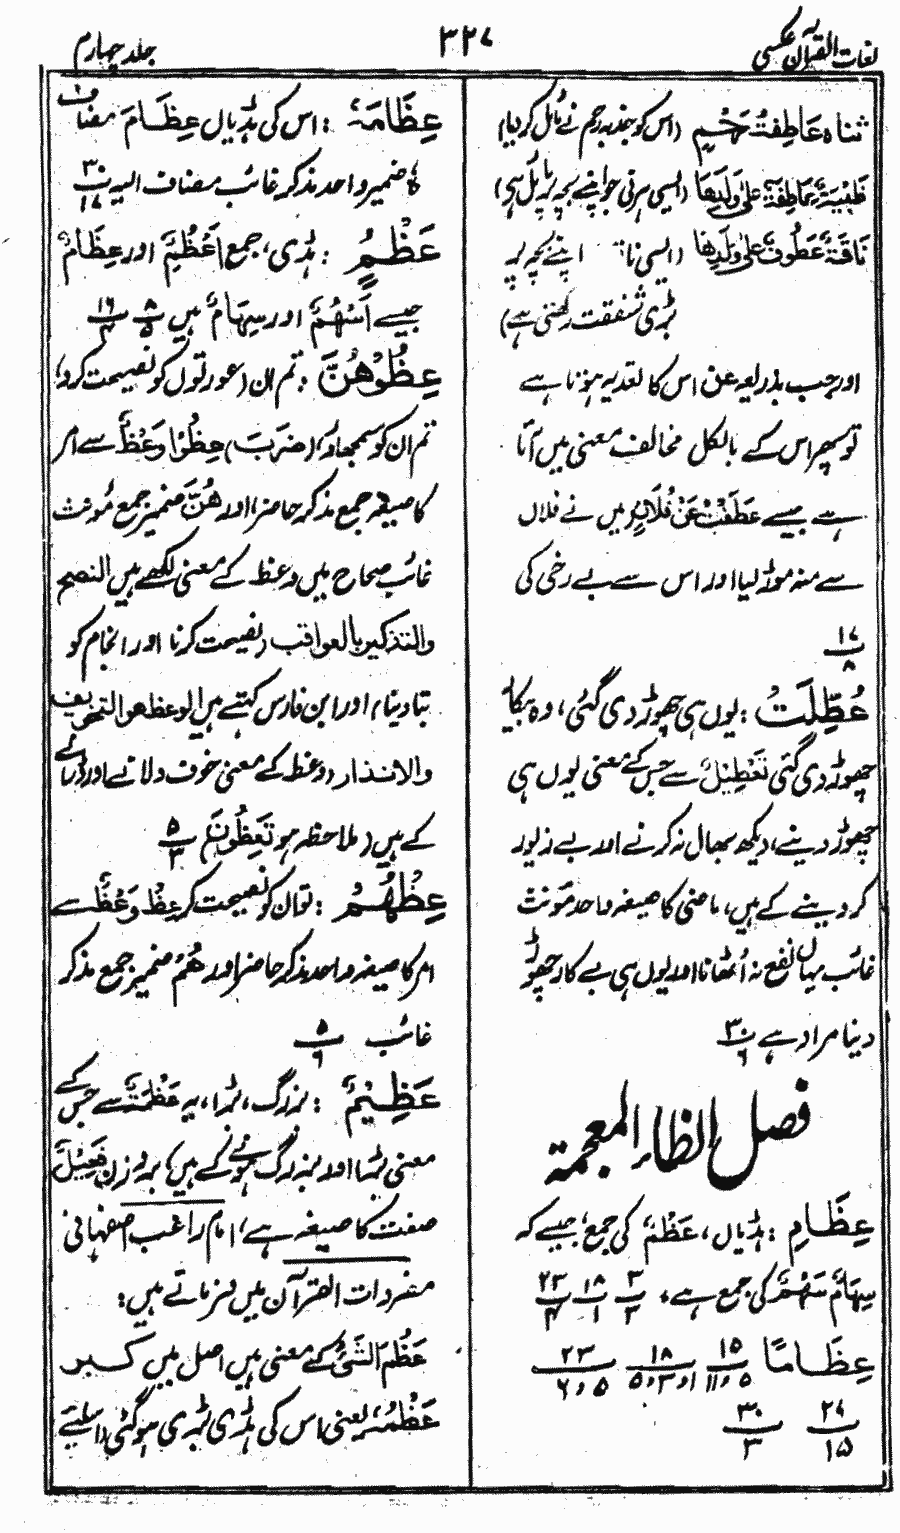 لغات القرآن عکسی
۳۲۷
جلد چہارم
ثناہ عَاطِفَةُ رَحِمٍ (اس کو جذبہ رحم نے مائل کر دیا)
ظَبْيَةٌ عَاطِفَةٌ عَلٰى وَلَدِهَا (ایسی ہرنی جو اپنے بچہ پر مائل ہے)
نَاقَةٌ عَطُوْفٌ عَلٰى وَلَدِهَا (ایسی ناقہ اپنے بچہ پر
بڑی شفقت رکھتی ہے)
اور جب بذریعہ عن اس کا تعدیہ ہوتا ہے
تو پھر اس کے بالکل مخالف معنی میں آتا
ہے جیسے عَطَفْتُ عَنْ فُلَانٍ میں نے فلاں
سے منہ موڑ لیا اور اس سے بے رخی کی
۱۷
۸
عُطِّلَتْ : یوں ہی چھوڑ دی گئی، وہ بیکار
چھوڑ دی گئی تَعْطِيْلٌ سے جس کے معنی یوں ہی
چھوڑ دینے، دیکھ بھال نہ کرنے اور بے زیور
کر دینے کے ہیں، ماضی کا صیغہ واحد مؤنث
غائب یہاں نفع نہ اُٹھانا اور یوں ہی بے کار چھوڑ
دینا مراد ہے ۳۰
۶
فصل الظاء المعجمة
عِظَامِ : ہڈیاں، عَظْمٌ کی جمع، جیسے کہ
سِهَامٌ سَهْمٌ کی جمع ہے، ۳ ۱۸ ۲۳
۳ ۱ ۴
عِظَامًا ۱۵ ۱۸ ۲۳
۵ و ۱۱ اور ۳ و ۵ ۵ و ۶
۲۷ ۳۰
۱۵ ۳
عِظَامَهٗ : اس کی ہڈیاں عِظَامَ مضاف
ہٗ ضمیر واحد مذکر غائب مضاف الیہ ۳۰
۱۷
عَظْمٌ : ہڈی، جمع اَعْظُمٌ اور عِظَامٌ
جیسے اَسْهُمٌ اور سِهَامٌ ہیں ۸ ۱۶
۵ ۴
عِظُوْهُنَّ : تم ان (عورتوں کو نصیحت کرو،
تم ان کو سمجھاؤ، (ضَرَبَ) عِظُوْا وَعْظٌ سے امر
کا صیغہ جمع مذکر حاضر، اور هُنَّ ضمیر جمع مؤنث
غائب صحاح میں وعظ کے معنی لکھے ہیں النصح
والتذکیر بالعواقب (نصیحت کرنا اور انجام کو
بتا دینا) اور ابن فارس کہتے ہیں الوعظ ھو التخویف
والانذار (وعظ کے معنی خوف دلانے اور ڈرانے
کے ہیں (ملاحظہ ہو تَعِظُوْنَ) ۵
۳
عِظْهُمْ : تو ان کو نصیحت کر عِظْ وَعْظٌ سے
امر کا صیغہ واحد مذکر حاضر اور هُمْ ضمیر جمع مذکر
غائب ۵
۶
عَظِيْمٌ : بزرگ، بڑا، یہ عَظْمَةٌ سے جس کے
معنی بڑا اور بزرگ ہونے کے ہیں، بروزن فَعِيْلٌ
صفت کا صیغہ ہے، امام راغب اصفہانی
مفردات القرآن میں فرماتے ہیں:
عَظُمَ الشَّيْءُ کے معنی ہیں اصل میں کبر
عَظْمُهٗ یعنی اس کی ہڈی بڑی ہو گئی (اسلئے